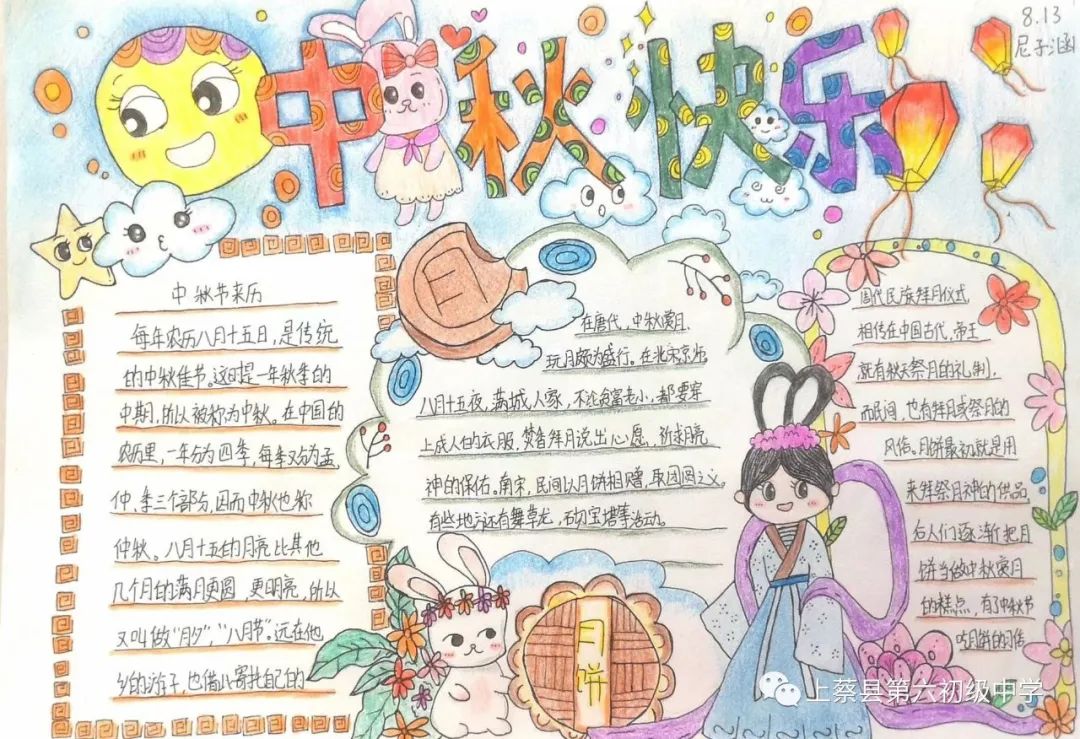 中秋快乐
8.13
中秋节来历
每年农历八月十五日,是传统
的中秋佳节。这时是一年秋季的
中期,所以被称为中秋。在中国的
农历里,一年分为四季,每季又分为孟
仲、季三个部分,因而中秋也称
仲秋。八月十五的月亮比其他
几个月的满月更圆,更明亮,所以
又叫做“月夕”,“八月节”。远在他
乡的游子,也借此寄托自己的
月
在唐代,中秋赏月、
玩月颇为盛行。在北宋京师
八月十五夜,满城人家,不论贫富老小,都要穿
上成人的衣服,焚香拜月说出心愿,祈求月亮
神的保佑。南宋,民间以月饼相赠,取团圆之义。
有些地方还有舞草龙,砌宝塔等活动。
月饼
周代民族拜月仪式
相传在中国古代,帝王
就有秋天祭月的礼制,
而民间,也有拜月或祭月的
风俗。月饼最初就是用
来拜祭月神的供品
后人们逐渐把月
饼当做中秋赏月
的糕点,有了中秋节
吃月饼的习俗
上蔡县第六初级中学